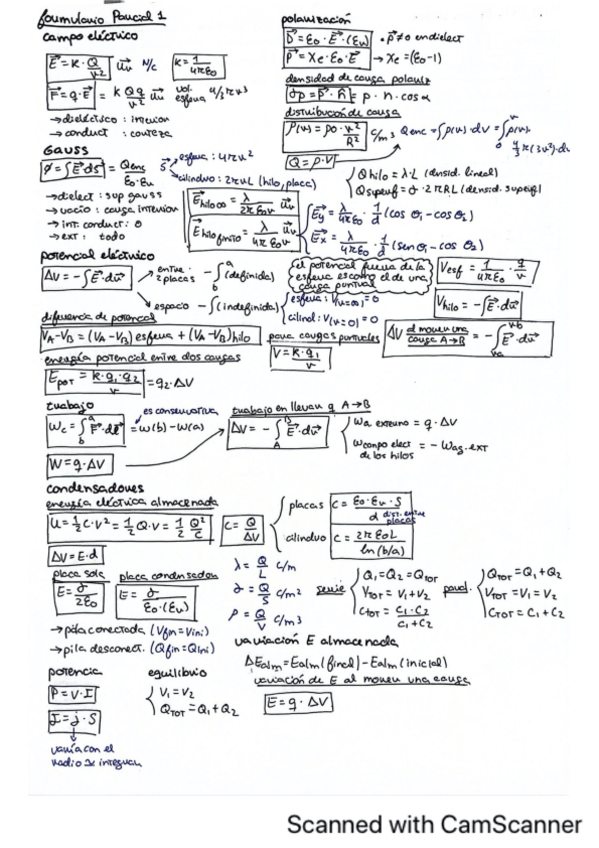 formulario Parcial 1
campo eléctrico
E = K · Q/r² ur N/C K = 1/4πε0
F = q · E = K Qq/r² ur vol. esfera 4/3 πr³
→ dieléctrico : interior
→ conduct : corteza
GAUSS
φ = ∫E ds = Qenc/ε0·εr S esfera : 4πr²
cilindro : 2πrL (hilo, placa)
→ dielect : sup gauss
→ vacío : carga interior
→ int. conduct : 0
→ ext : todo
E hilo∞ = λ/2πε0r ur
E hilo finito = λ/4πε0r ur
Ey = λ/4πε0 · 1/d (cos θ1 - cos θ2)
Ex = λ/4πε0 · 1/d (sen θ1 - cos θ2)
polarización
D = ε0 · E · (εr) · P ≠ 0 en dielect
P = Xe · ε0 · E → Xe = (ε0-1)
densidad de carga polariz
σp = P · n = p · n · cos α
distribución de carga
ρ(r) = ρ0 · r²/R² C/m³ Qenc = ∫ρ(r) · dV = ∫ρ(r)
4/3 π(3r²) · dr
Q = ρ · V
Q hilo = λ · L (densid. lineal)
Q superf = σ · 2πRL (densid. superf)
potencial eléctrico
ΔV = - ∫E · dr entre 2 placas - ∫ (definida)
espacio - ∫ (indefinida)
el potencial fuera de la
esfera es como el de una
carga puntual
esfera : V(r=∞) = 0
cilind : V(r=0) = 0
Vesf = 1/4πε0 · q/r
Vhilo = - ∫E · dr
diferencia de potencial
VA-VB = (VA-VB) esfera + (VA-VB) hilo
para cargas puntuales
V = K · q1/r
ΔV al mover una carga A→B = - ∫E · dr
energía potencial entre dos cargas
Epot = K · q1 · q2/r = q2 · ΔV
trabajo
es conservativa
Wc = ∫F · dl = W(b) - W(a)
W = q · ΔV
trabajo en llevar q A→B
ΔV = - ∫E · dr
Wa externo = q · ΔV
W campo elect de los hilos = - Wag.ext
condensadores
energía eléctrica almacenada
U = 1/2 C · V² = 1/2 Q · V = 1/2 Q²/C C = Q/ΔV
placas C = ε0 · εr · S/d dist. entre placas
cilindro C = 2πε0L/ln(b/a)
ΔV = E · d
placa sola
E = σ/2ε0
placa condensador
E = σ/ε0 · (εr)
λ = Q/L C/m
σ = Q/S C/m²
ρ = Q/V C/m³
serie Q1 = Q2 = QTOT
VTOT = V1 + V2
CTOT = C1 · C2/C1 + C2
paral. QTOT = Q1 + Q2
VTOT = V1 = V2
CTOT = C1 + C2
→ pila conectada (Vfin = Vini)
→ pila desconect. (Qfin = Qini)
variación E almacenada
ΔEalm = Ealm (final) - Ealm (inicial)
variación de E al mover una carga
E = q · ΔV
potencia
P = V · I
I = j · S
varía con el
radio se integran
equilibrio
V1 = V2
QTOT = Q1 + Q2
Scanned with CamScanner